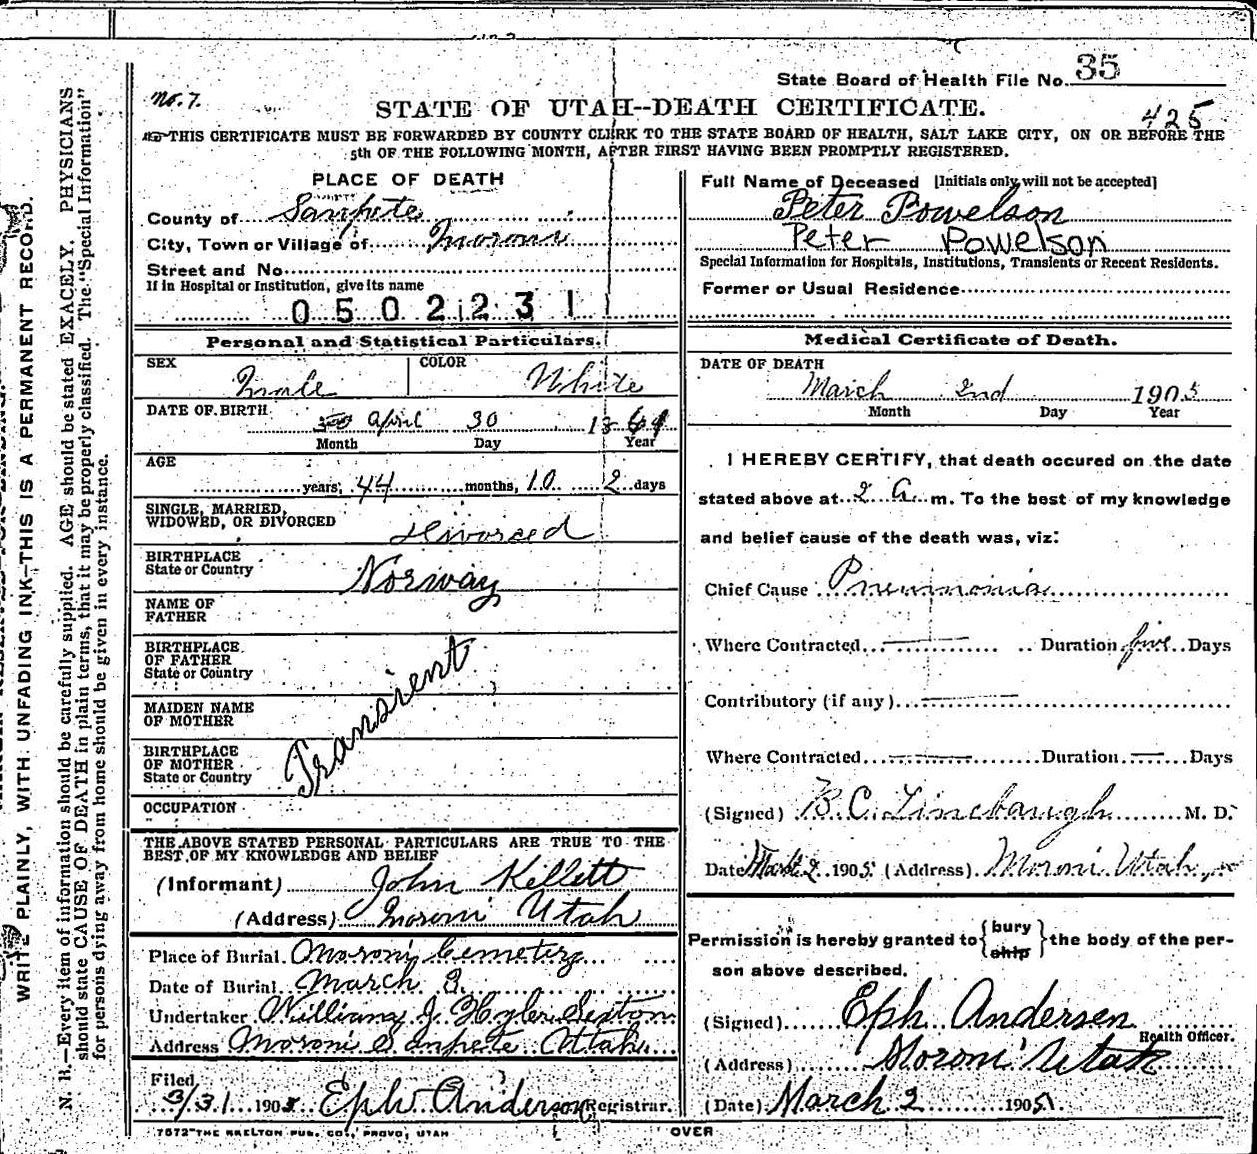 State Board of Health File No. 35
No. 7.
STATE OF UTAH--DEATH CERTIFICATE.
425
THIS CERTIFICATE MUST BE FORWARDED BY COUNTY CLERK TO THE STATE BOARD OF HEALTH, SALT LAKE CITY, ON OR BEFORE THE
5th OF THE FOLLOWING MONTH, AFTER FIRST HAVING BEEN PROMPTLY REGISTERED.
PLACE OF DEATH
County of Sanpete
City, Town or Village of Moroni
Street and No.
If in Hospital or Institution, give its name
0502231
Personal and Statistical Particulars.
SEX COLOR
Male White
DATE OF BIRTH
April 30 18
Month Day Year
AGE
years, 44 months, 10 2 days
SINGLE, MARRIED,
WIDOWED, OR DIVORCED Divorced
BIRTHPLACE
State or Country Norway
NAME OF
FATHER
BIRTHPLACE
OF FATHER
State or Country
MAIDEN NAME
OF MOTHER
BIRTHPLACE
OF MOTHER
State or Country
Transient
OCCUPATION
THE ABOVE STATED PERSONAL PARTICULARS ARE TRUE TO THE
BEST OF MY KNOWLEDGE AND BELIEF
(Informant) John Kellett
(Address) Moroni Utah
Place of Burial Moroni Cemetery
Date of Burial March
Undertaker William J. Sexton
Address Moroni Sanpete Utah
Filed
3/31 1905 Eph Anderson Registrar.
7572 THE SKELTON PUB. CO., PROVO, UTAH
Full Name of Deceased [Initials only will not be accepted]
Peter Powelson
Peter Powelson
Special Information for Hospitals, Institutions, Transients or Recent Residents.
Former or Usual Residence
Medical Certificate of Death.
DATE OF DEATH
March 2nd 1905
Month Day Year
I HEREBY CERTIFY, that death occured on the date
stated above at 2 a. m. To the best of my knowledge
and belief cause of the death was, viz:
Chief Cause Pneumonia
Where Contracted Duration five Days
Contributory (if any)
Where Contracted Duration Days
(Signed) B. C. Linebaugh M. D.
Date March 2 1905 (Address) Moroni Utah
Permission is hereby granted to {bury ship} the body of the per-
son above described.
(Signed) Eph Andersen
Health Officer.
(Address) Moroni Utah
(Date) March 2 1905
OVER
WRITE PLAINLY, WITH UNFADING INK—THIS IS A PERMANENT RECORD.
N. B.—Every item of information should be carefully supplied. AGE should be stated EXACELY. PHYSICIANS
should state CAUSE OF DEATH in plain terms, that it may be properly classified. The "Special Information"
for persons dying away from home should be given in every instance.